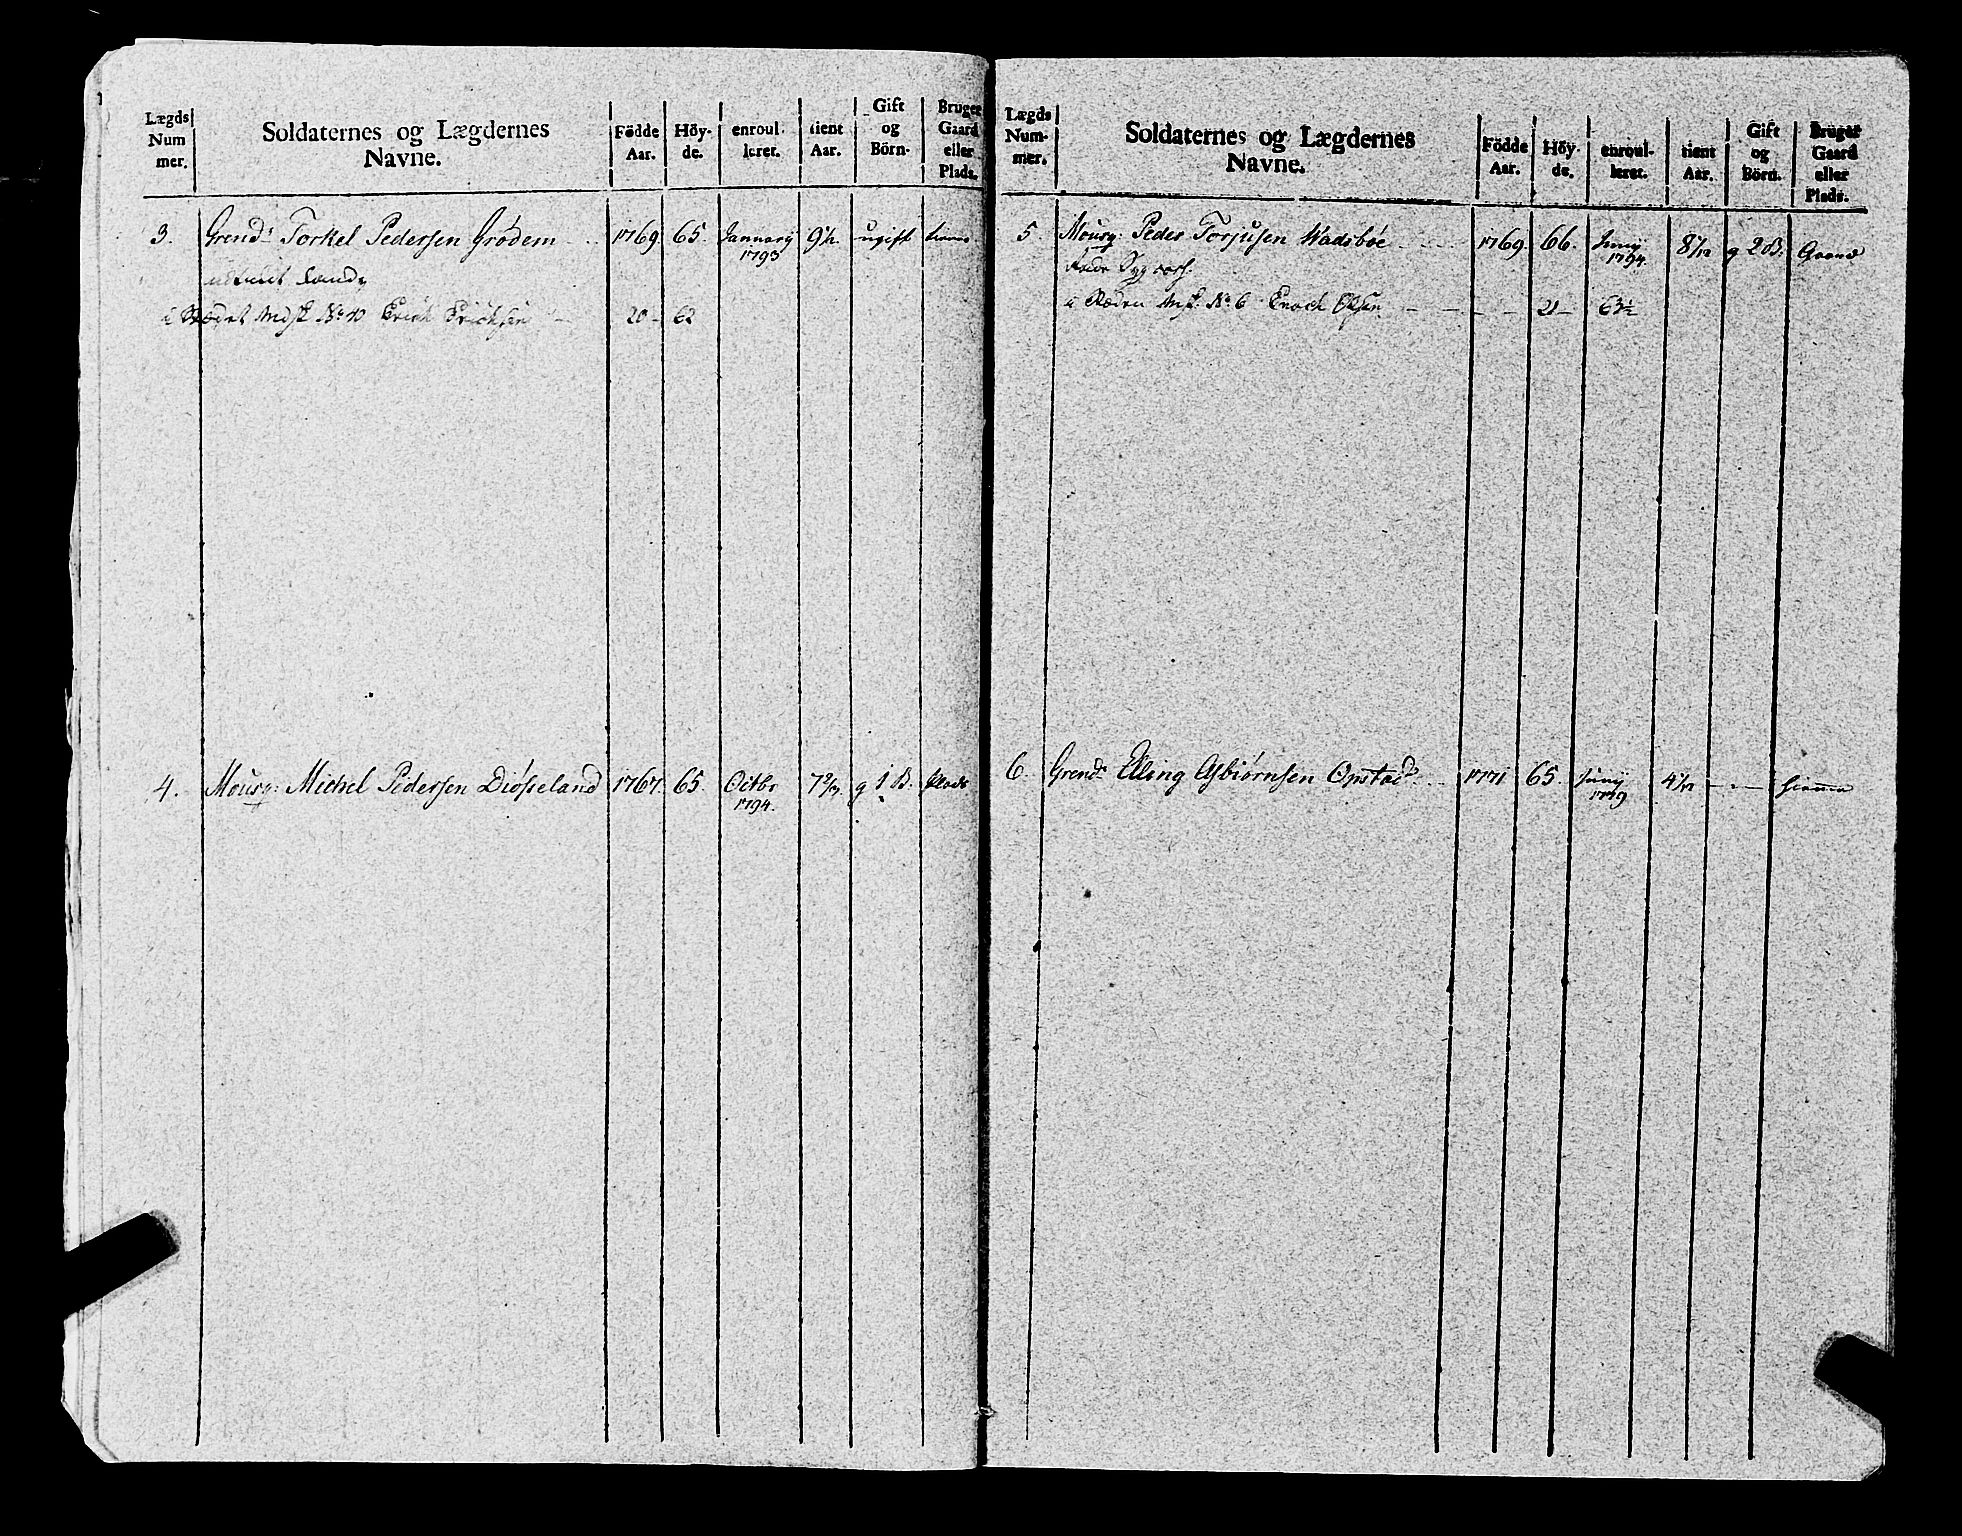 Lægds Num mer. Soldaternes og Lægdernes Navne. Födde Aar. Höy- de. enroul- leret. tient Aar. Gift og Börn. Bruger Gaard eller Plads.
3. Grend: Torkel Pedersen Grödem 1769. 65. Januarij 1793 ugift
i Stædet Mdsk No 40 Erich Erichsen 20 - 62
4. Mousq: Michel Pedersen Diösseland 1767. 65. Octbr 1794. g 1 B. Plads
Lægds Num- mer. Soldaternes og Lægdernes Navne. Födde Aar. Höy- de. enroul- leret. tient Aar. Gift og Börn. Bruger Gaard eller Plads.
5. Mousq: Peder Torjusen Wadsböe 1769. 66. Junij 1794. 8 1/12 g 2 B. Gaard
No 6 Enoch Olsen 21 - 63½
6. Grend: Elling Asbiörnsen Opstad 1771 65. Junij 4 1/12 hiemme